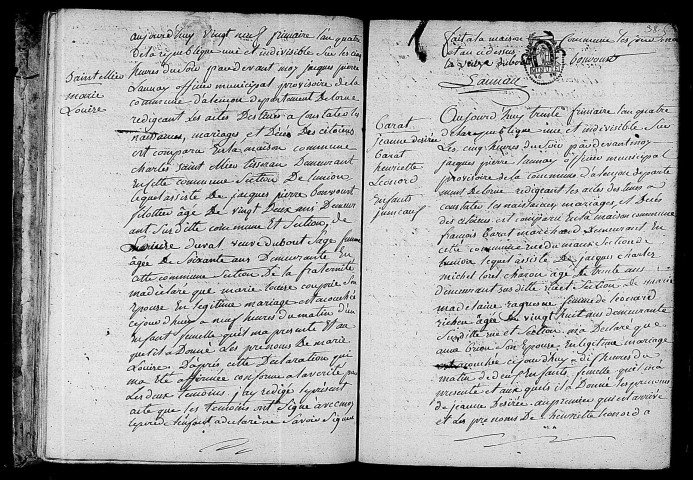 aujourd'huy vingt neuf frimaire l'an quatre
de la republique une et indivisible sur les cinq
heures du soir pardevant moy jacques pierre
Launay officier municipal provisoire de la
commune d'alencon departement de lorne
redigeant les actes destinés a Constater les
naissances, mariages et Décès des citoiens
est comparu En la maison commune
charles saint Mieu tisseran Demeurant
En cette commune Section de l'union
lequel assiste de jacques pierre Bonvoust
âgé de Vingt Deux ans Demeur
ant Surditte commune et Section, de
Louise duval veuve dubout Sage femme
âgée de Soixante ans Demeurante En
cette commune Section de la fraternité
m'a déclaré que marie louise
Epouse En legitime mariage est accouchée
cejourd'huy a neuf heures du matin d'un
Enfant femelle quil m'a presenté Et au
quel il a Donné Les prenoms de marie
Louise. D'après cette Declaration que
m'a été affirmée conforme a la verité par
Les deux temoins j'ay redigé le present
acte que les temoins ont Signé avec moy
le pere de l'enfant a declaré ne Savoir Signer
Saint Mieu
marie
Louise
38
fait a la maison commune les jour mois
et an cidessus
la veuve dubout bonvoust
Launay
Aujourd'huy trente frimaire l'an quatre
de la republique une et indivisible Sur
Les cinq heures du Soir Pardevant moy
jacques pierre Launay officier municipal
provisoire de la commune d'alencon departe
ment de lorne redigeant les actes destinés a
constater les naissances mariages et Décès
des citoiens est comparu En la maison commune
francois Carat marchand Demeurant En
cette commune rue du maux Section de
l'union lequel assiste de jacques charles
michel loret charon âgé de trente ans
demeurant sus ditte rue et Section de marie
madelaine ragaigne femme de leonard
richer âgée de vingt huit ans demeurante
Surditte rue et Section m'a Declaré que
anne Son Epouse En legitime mariage
est accouchée cejourd'huy a dix heures du
matin de deux Enfants femelle quil m'a
presenté et aux quels il a Donné les prenoms
de jeanne Desirée au premier qui est arrivé
et les prenoms De henriette leonord a
Carat
Jeanne desirée
Carat
henriette
Leonord
Enfants
jumeaux